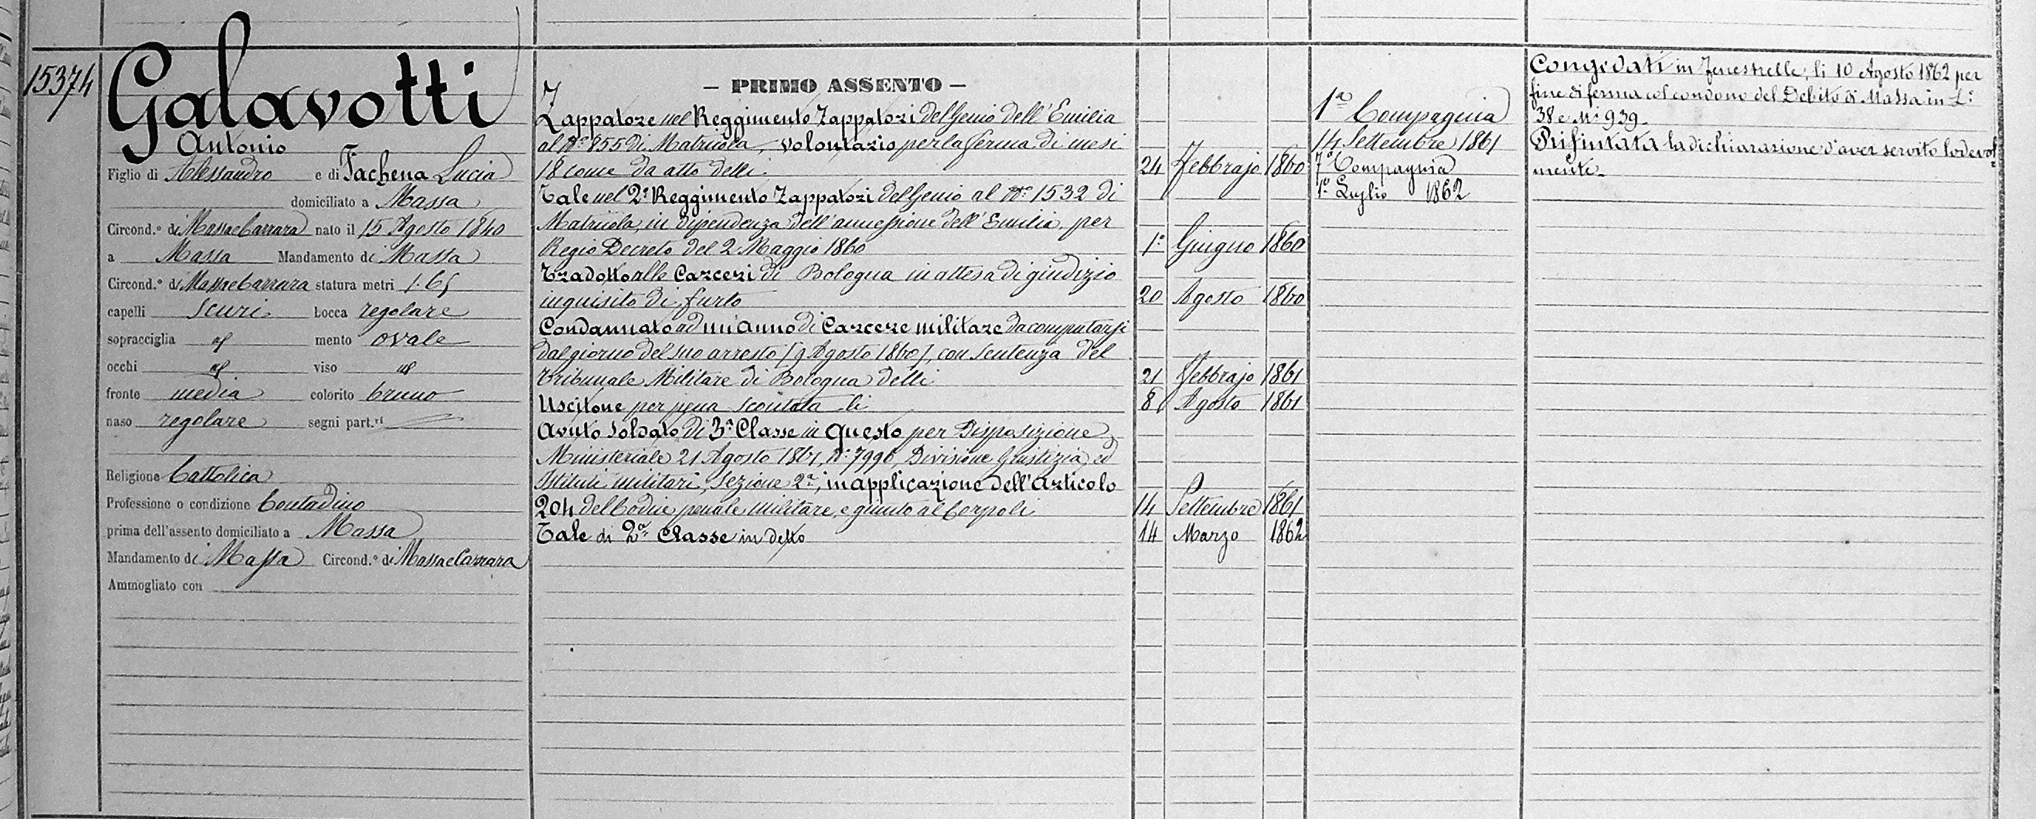 15374
Galavotti
Antonio
Figlio di Alessandro e di Fachena Lucia
domiciliato a Massa
Circond.º di Massa e Carrara nato il 15 Agosto 1840
a Massa Mandamento di Massa
Circond.º di Massa e Carrara statura metri 1.65
capelli scuri bocca regolare
sopracciglia id mento ovale
occhi id viso id
fronte media colorito bruno
naso regolare segni part.ri
Religione Cattolica
Professione o condizione Contadino
prima dell'assento domiciliato a Massa
Mandamento di Massa Circond.º di Massa e Carrara
Ammogliato con
– PRIMO ASSENTO –
Zappatore nel Reggimento Zappatori del Genio dell'Emilia
al Nº 855 di Matricola, volontario per la ferma di mesi
18 come da atto delli 24 Febbrajo 1860
Tale nel 2º Reggimento Zappatori del Genio al Nº 1532 di
Matricola, in dipendenza dell'annessione dell'Emilia, per
Regio Decreto del 2 Maggio 1860 1º Giugno 1860
Tradotto alle Carceri di Bologna in attesa di giudizio
inquisito di furto 20 Agosto 1860
Condannato ad un'anno di Carcere militare da computarsi
dal giorno del suo arresto (9 Agosto 1860), con sentenza del
Tribunale Militare di Bologna delli 21 Febbrajo 1861
Uscitone per pena scontata li 8 Agosto 1861
Avuto Soldato di 3ª Classe in Questo per Disposizione
Ministeriale 21 Agosto 1861, Nº 7996, Divisione Giustizia, ed
Istituti militari, Sezione 2ª, in applicazione dell'Articolo
204 del Codice penale militare, e giunto al Corpo li 14 Settembre 1861
Tale di 2ª Classe in detto 14 Marzo 1862
1ª Compagnia
14 Settembre 1861
7ª Compagnia
1º Luglio 1862
Congedati in Fenestrelle, li 10 Agosto 1862 per
fine di ferma col condono del Debito di Massa in L.
38 e M.i 939.
Rifiutata la dichiarazione d'aver servito lodevol-
mente.